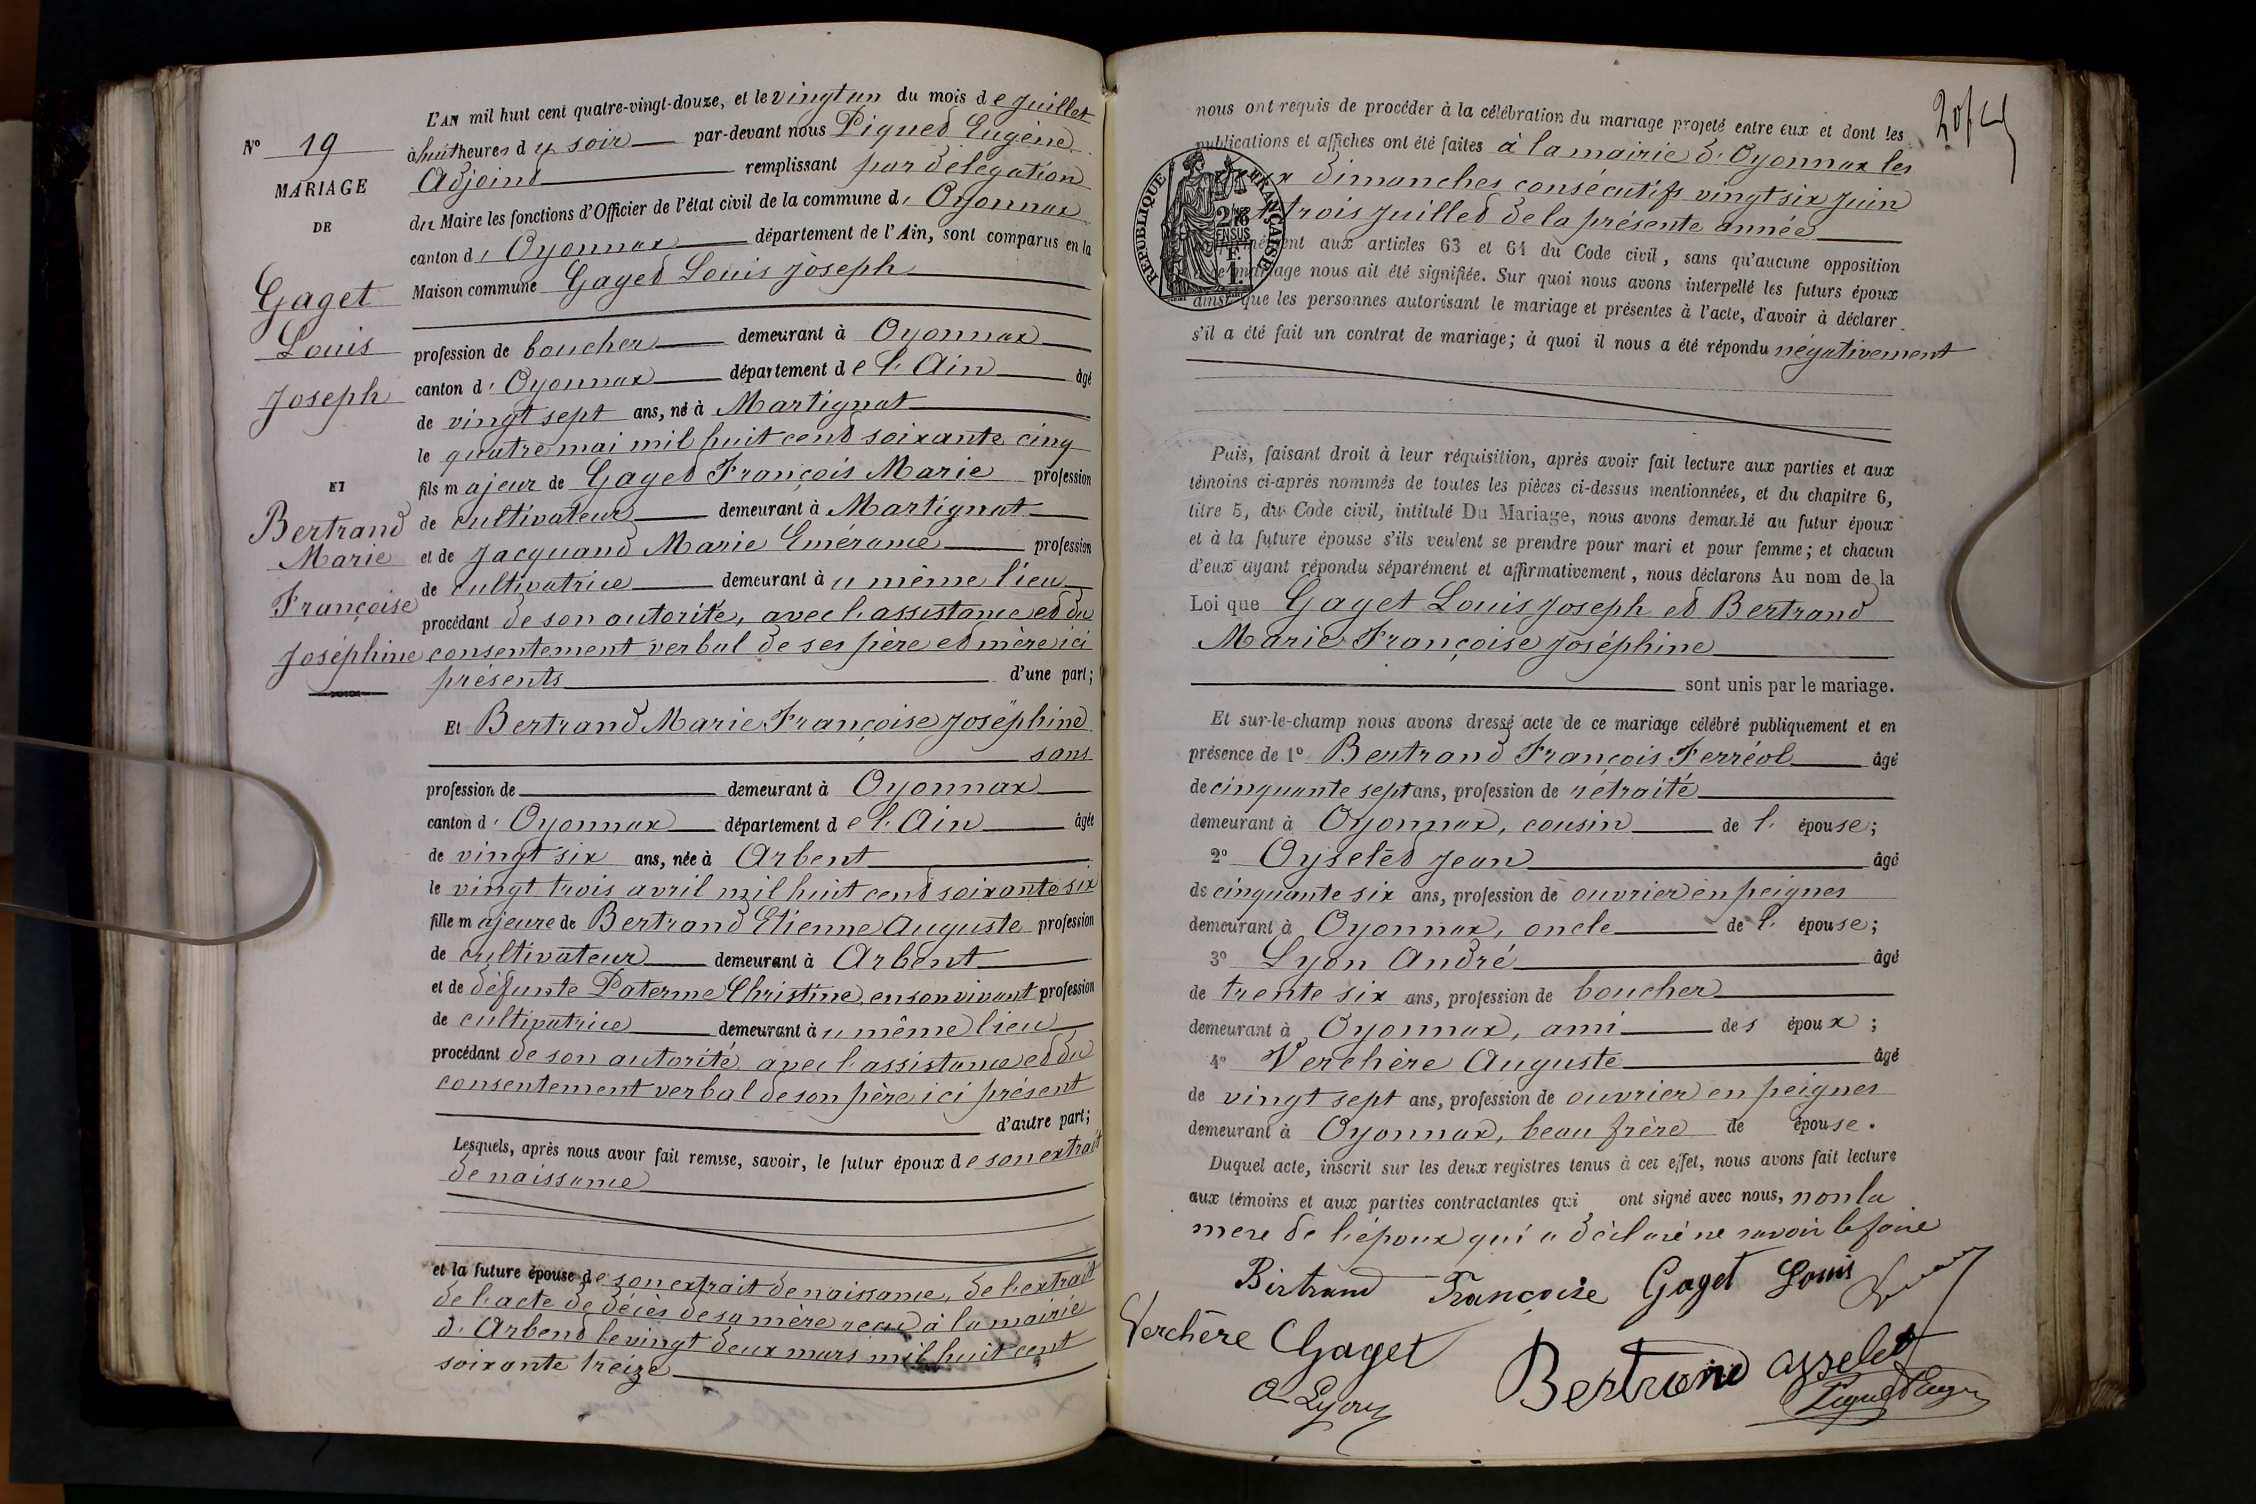 L'AN mil huit cent quatre-vingt-douze, et le vingt un du mois de juillet
à huit heures du soir par-devant nous Piquet Eugène
Adjoint remplissant par délégation
du Maire les fonctions d'Officier de l'état civil de la commune d' Oyonnax
canton d' Oyonnax département de l'Ain, sont comparus en la
Maison commune Gaget Louis Joseph
profession de boucher demeurant à Oyonnax
canton d' Oyonnax département de l'Ain âgé
de vingt sept ans, né à Martignat
le quatre mai mil huit cent soixante cinq
fils majeur de Gaget François Marie profession
de cultivateur demeurant à Martignat
et de Jacquand Marie Emérance profession
de cultivatrice demeurant au même lieu
procédant de son autorité, avec l'assistance et du
consentement verbal de ses père et mère ici
présents d'une part;
Et Bertrand Marie Françoise Joséphine
sans
profession de demeurant à Oyonnax
canton d' Oyonnax département de l'Ain âgée
de vingt six ans, née à Arbent
le vingt trois avril mil huit cent soixante six
fille majeure de Bertrand Etienne Auguste profession
de cultivateur demeurant à Arbent
et de défunte Paterne Christine, en son vivant profession
de cultivatrice demeurant au même lieu
procédant de son autorité avec l'assistance et du
consentement verbal de son père ici présent
d'autre part;
Lesquels, après nous avoir fait remise, savoir, le futur époux de son extrait
de naissance
et la future épouse de son extrait de naissance, de l'extrait
de l'acte de décès de sa mère reçu à la mairie
d'Arbent le vingt deux mars mil huit cent
soixante treize
N° 19
MARIAGE
DE
Gaget
Louis
Joseph
ET
Bertrand
Marie
Françoise
Joséphine
nous ont requis de procéder à la célébration du mariage projeté entre eux et dont les
publications et affiches ont été faites à la mairie d'Oyonnax les
dimanches consécutifs vingt six juin
trois juillet de la présente année
aux articles 63 et 64 du Code civil, sans qu'aucune opposition
mariage nous ait été signifiée. Sur quoi nous avons interpellé les futurs époux
ainsi que les personnes autorisant le mariage et présentes à l'acte, d'avoir à déclarer
s'il a été fait un contrat de mariage; à quoi il nous a été répondu négativement
RÉPUBLIQUE FRANÇAISE
Puis, faisant droit à leur réquisition, après avoir fait lecture aux parties et aux
témoins ci-après nommés de toutes les pièces ci-dessus mentionnées, et du chapitre 6,
titre 5, du Code civil, intitulé Du Mariage, nous avons demandé au futur époux
et à la future épouse s'ils veulent se prendre pour mari et pour femme; et chacun
d'eux ayant répondu séparément et affirmativement, nous déclarons Au nom de la
Loi que Gaget Louis Joseph et Bertrand
Marie Françoise Joséphine
sont unis par le mariage.
Et sur-le-champ nous avons dressé acte de ce mariage célébré publiquement et en
présence de 1° Bertrand François Ferréol âgé
de cinquante sept ans, profession de retraité
demeurant à Oyonnax, cousin de l' épouse;
2° Oyselet Jean âgé
de cinquante six ans, profession de ouvrier en peignes
demeurant à Oyonnax, oncle de l' épouse;
3° Lyon André âgé
de trente six ans, profession de boucher
demeurant à Oyonnax, ami des époux;
4° Verchère Auguste âgé
de vingt sept ans, profession de ouvrier en peignes
demeurant à Oyonnax, beau frère de épouse.
Duquel acte, inscrit sur les deux registres tenus à cet effet, nous avons fait lecture
aux témoins et aux parties contractantes qui ont signé avec nous, non la
mère de l'époux qui a déclaré ne savoir le faire
Bertrand Françoise Gaget Louis
Verchère Gaget Bertrand Oyselet
A Lyon Piquet Eugène